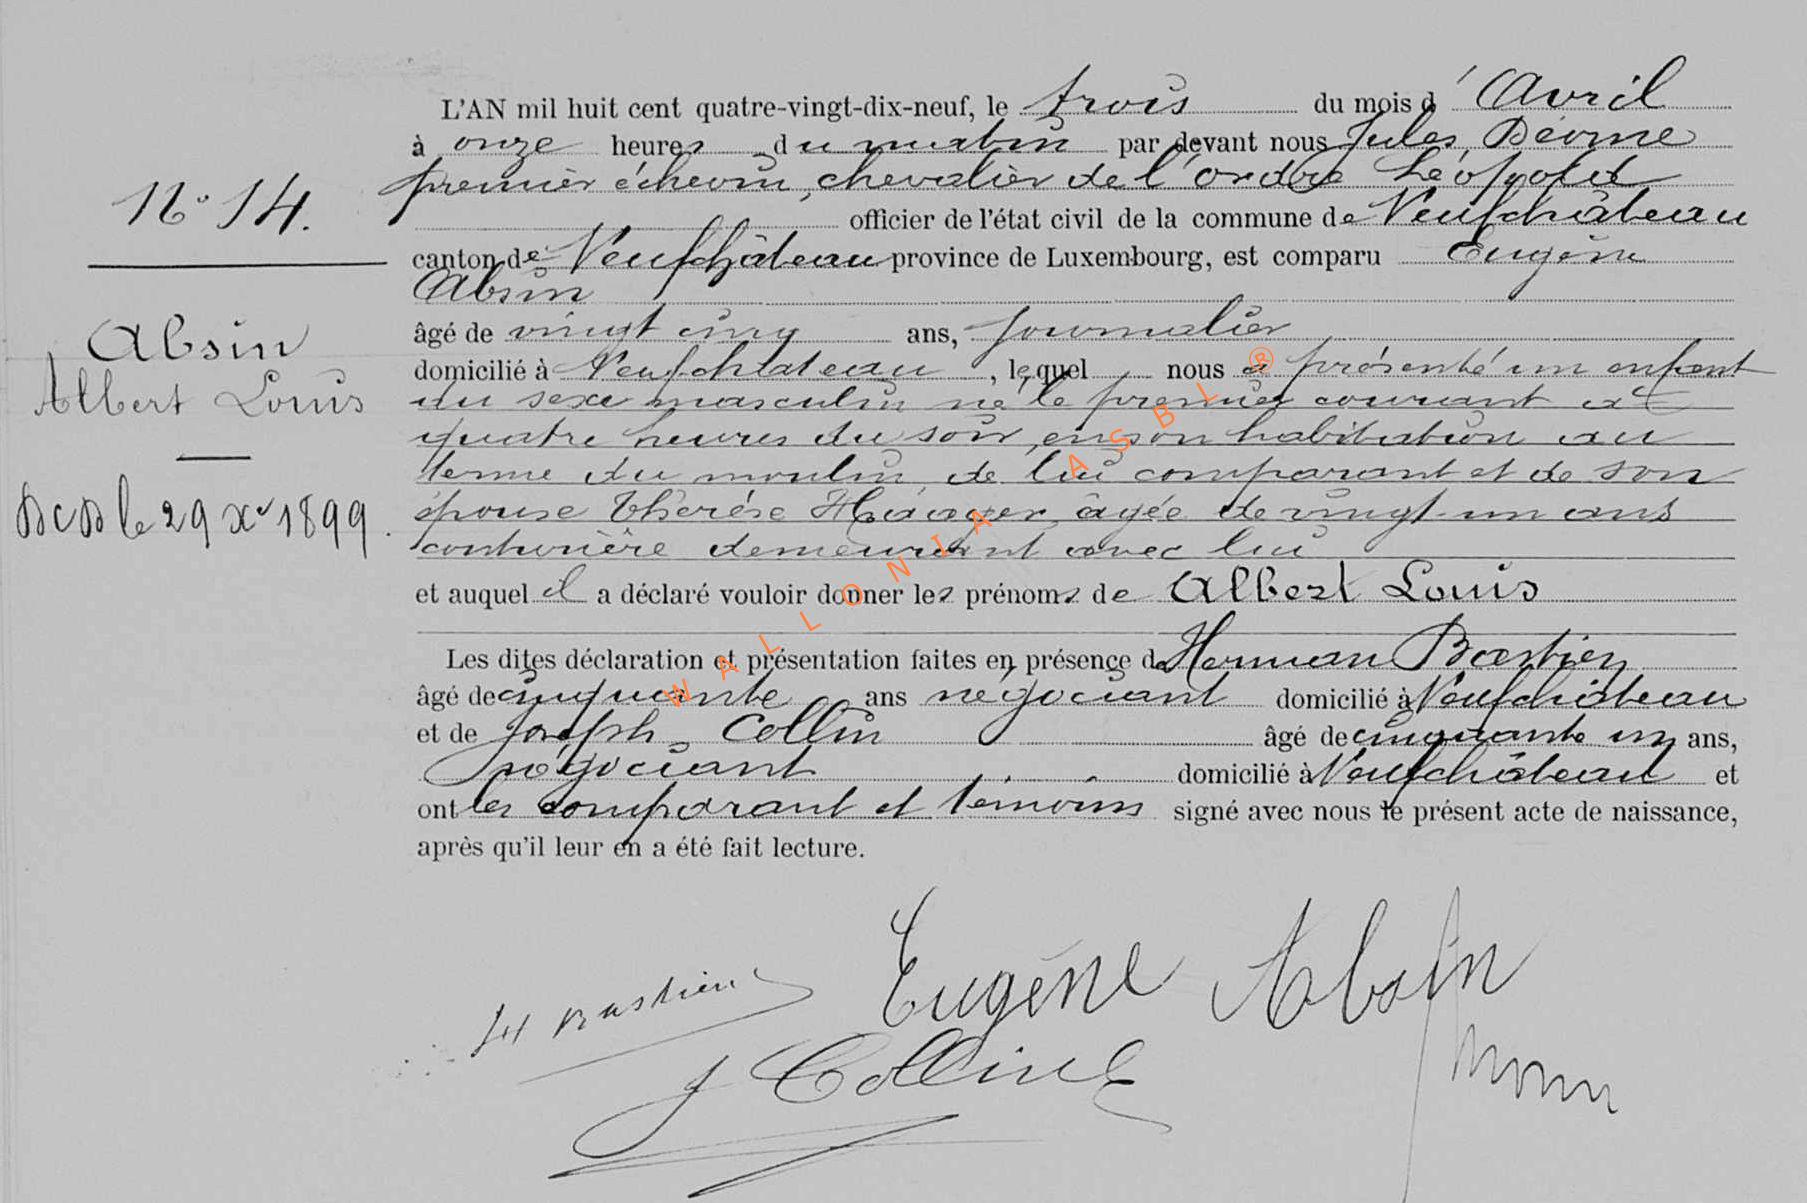 N° 14.
Absin
Albert Louis
DCD le 29 Xe 1899.
L'AN mil huit cent quatre-vingt-dix-neuf, le trois du mois d'Avril
à onze heures du matin par devant nous Jules
premier échevin, chevalier de l'ordre Léopold
officier de l'état civil de la commune de Neufchâteau
canton de Neufchâteau province de Luxembourg, est comparu Eugène
Absin
âgé de vingt cinq ans, journalier
domicilié à Neufchateau, lequel nous a présenté un enfant
du sexe masculin né le premier courant à
quatre heures du soir, en son habitation au
terme du moulin de lui comparant et de son
épouse Thérèse âgée de vingt-un ans
couturière demeurant avec lui
et auquel il a déclaré vouloir donner les prénoms de Albert Louis
Les dites déclaration et présentation faites en présence de Herman Bastien
âgé de cinquante ans négociant domicilié à Neufchâteau
et de Joseph Collin âgé de cinquante un ans,
négociant domicilié à Neufchâteau et
ont les comparant et témoins signé avec nous le présent acte de naissance,
après qu'il leur en a été fait lecture.
H Bastien
Eugène Absin
J Collin
WALLONIA ASBL ®